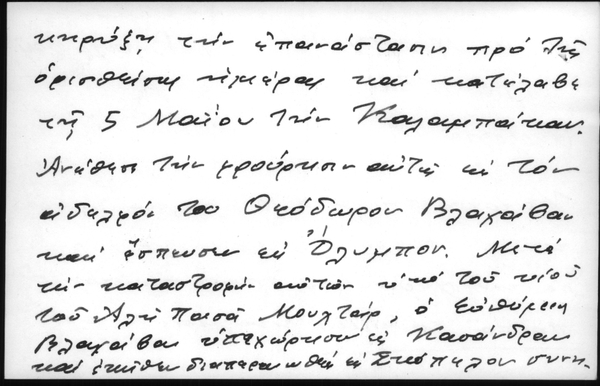 κηρύξῃ τήν ἐπανάστασιν πρό τῆς
ὁρισθείσης ἡμέρας καί κατέλαβε
τῇ 5 Μαΐου τήν Καλαμπάκαν.
Ἀνέθεσε τήν φρούρησιν αὐτῆς εἰς τόν
ἀδελφόν του Θεόδωρον Βλαχάβαν
καί ἔσπευσεν εἰς Ὄλυμπον. Μετά
τήν καταστροφήν αὐτῶν ὑπό τοῦ υἱοῦ
τοῦ Ἀλῆ Πασᾶ Μουχτάρ, ὁ Εὐθύμιος
Βλαχάβας ὑπεχώρησεν εἰς Κασάνδραν
καί ἐκεῖθεν διαπεραιωθείς εἰς Σκόπελον συνη-